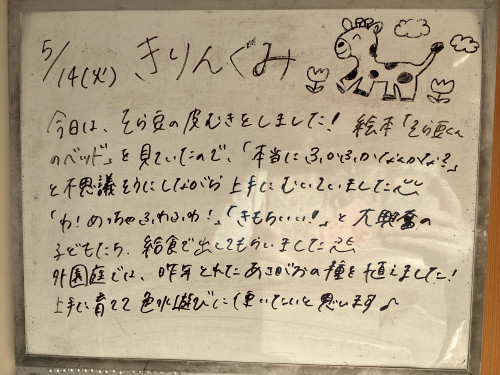 5/14(火) きりんぐみ
今日は、そら豆の皮むきをしました! 絵本「そら豆くん
のベッド」を見ていたので、「本当にふかふかなんかな?」
と不思議そうにしながら上手にむいていました
「わ!めっちゃふわふわ!」「きもちいい!」と大興奮の
子どもたち。給食で出してもらいました
外園庭では、昨年とれたあさがおの種を植えました!
上手に育てて色水遊びに使いたいと思います♪